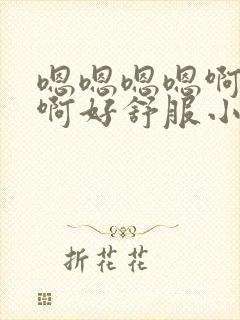 嗯嗯嗯嗯啊
啊好舒服小
折花花